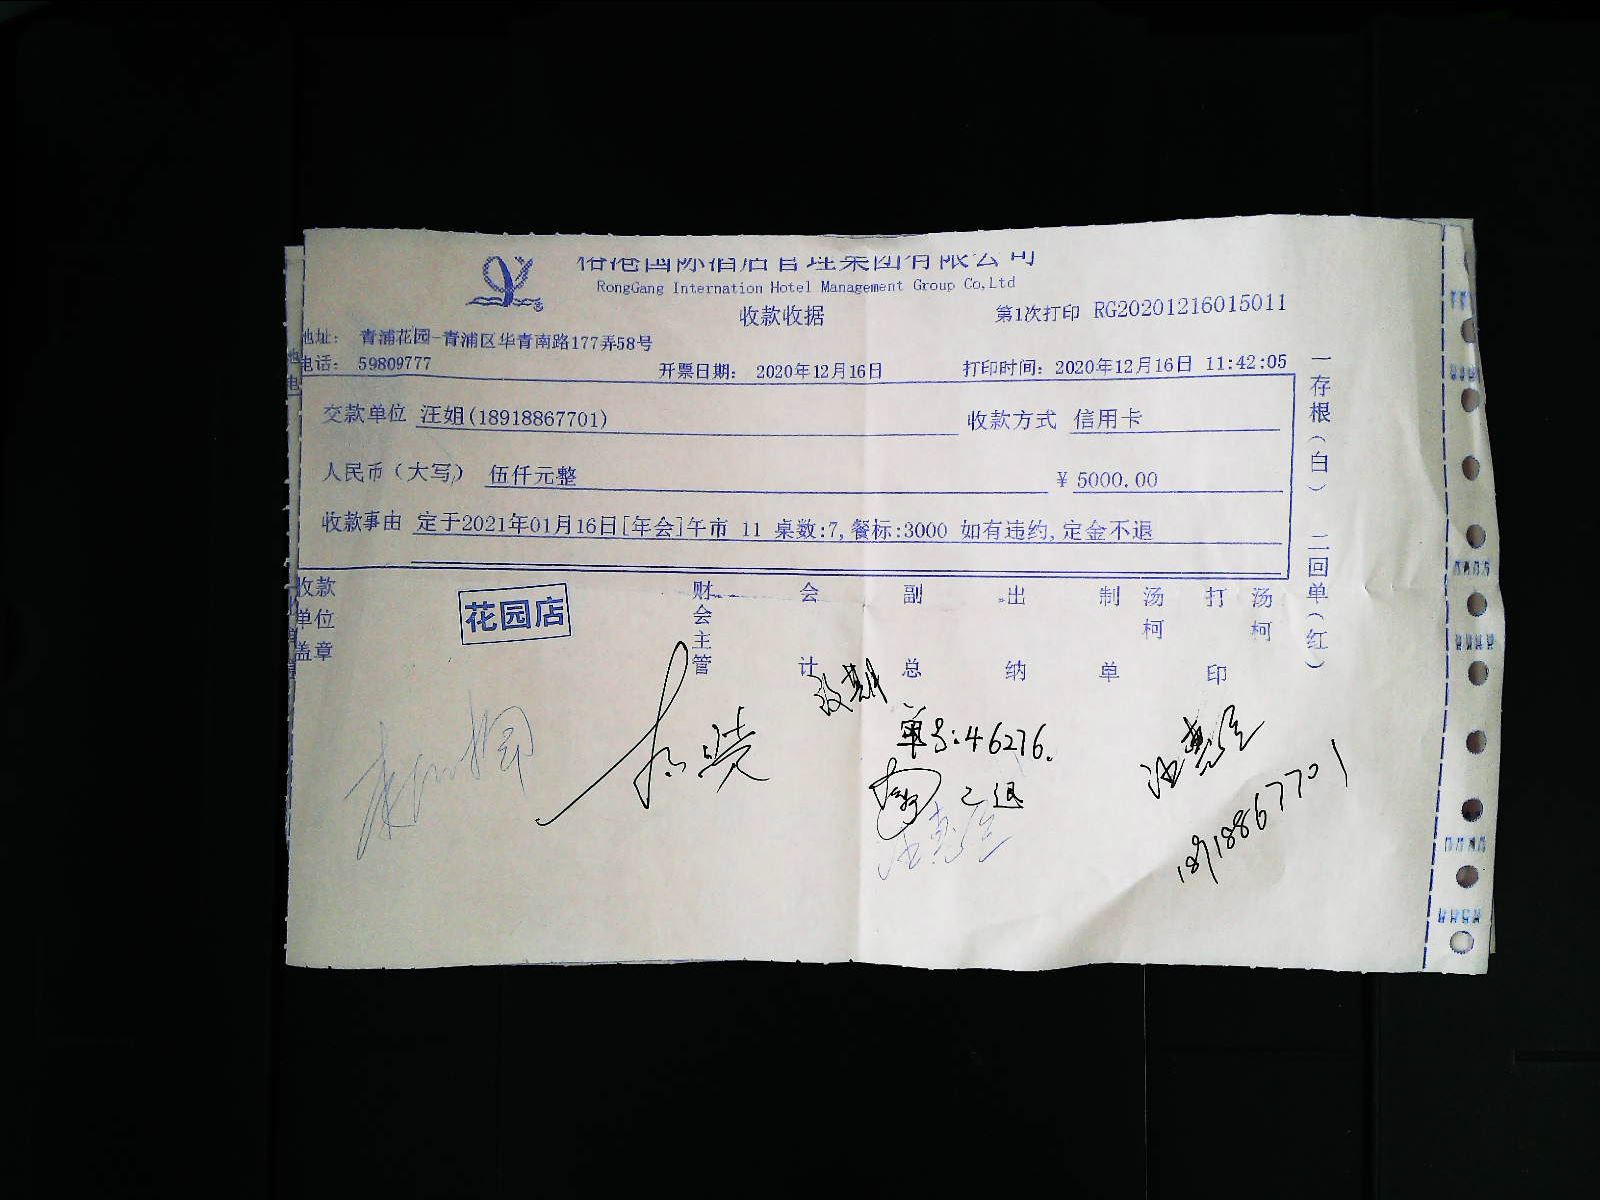 国际酒店管理集团有限公司
RongGang Internation Hotel Management Group Co,Ltd
收款收据
第1次打印 RG20201216015011
地址： 青浦花园-青浦区华青南路177弄58号
电话： 59809777
开票日期： 2020年12月16日
打印时间：2020年12月16日 11:42:05
交款单位 汪姐(18918867701)
收款方式 信用卡
人民币（大写） 伍仟元整
¥ 5000.00
收款事由 定于2021年01月16日[年会]午市 11 桌数:7,餐标:3000 如有违约,定金不退
一存根（白） 二回单（红）
收款单位盖章
花园店
财会主管
会计
副总
出纳
制单
汤柯
打印
汤柯
单号:46276.
已退
18918867701